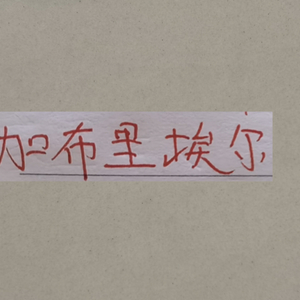 加布里埃尔